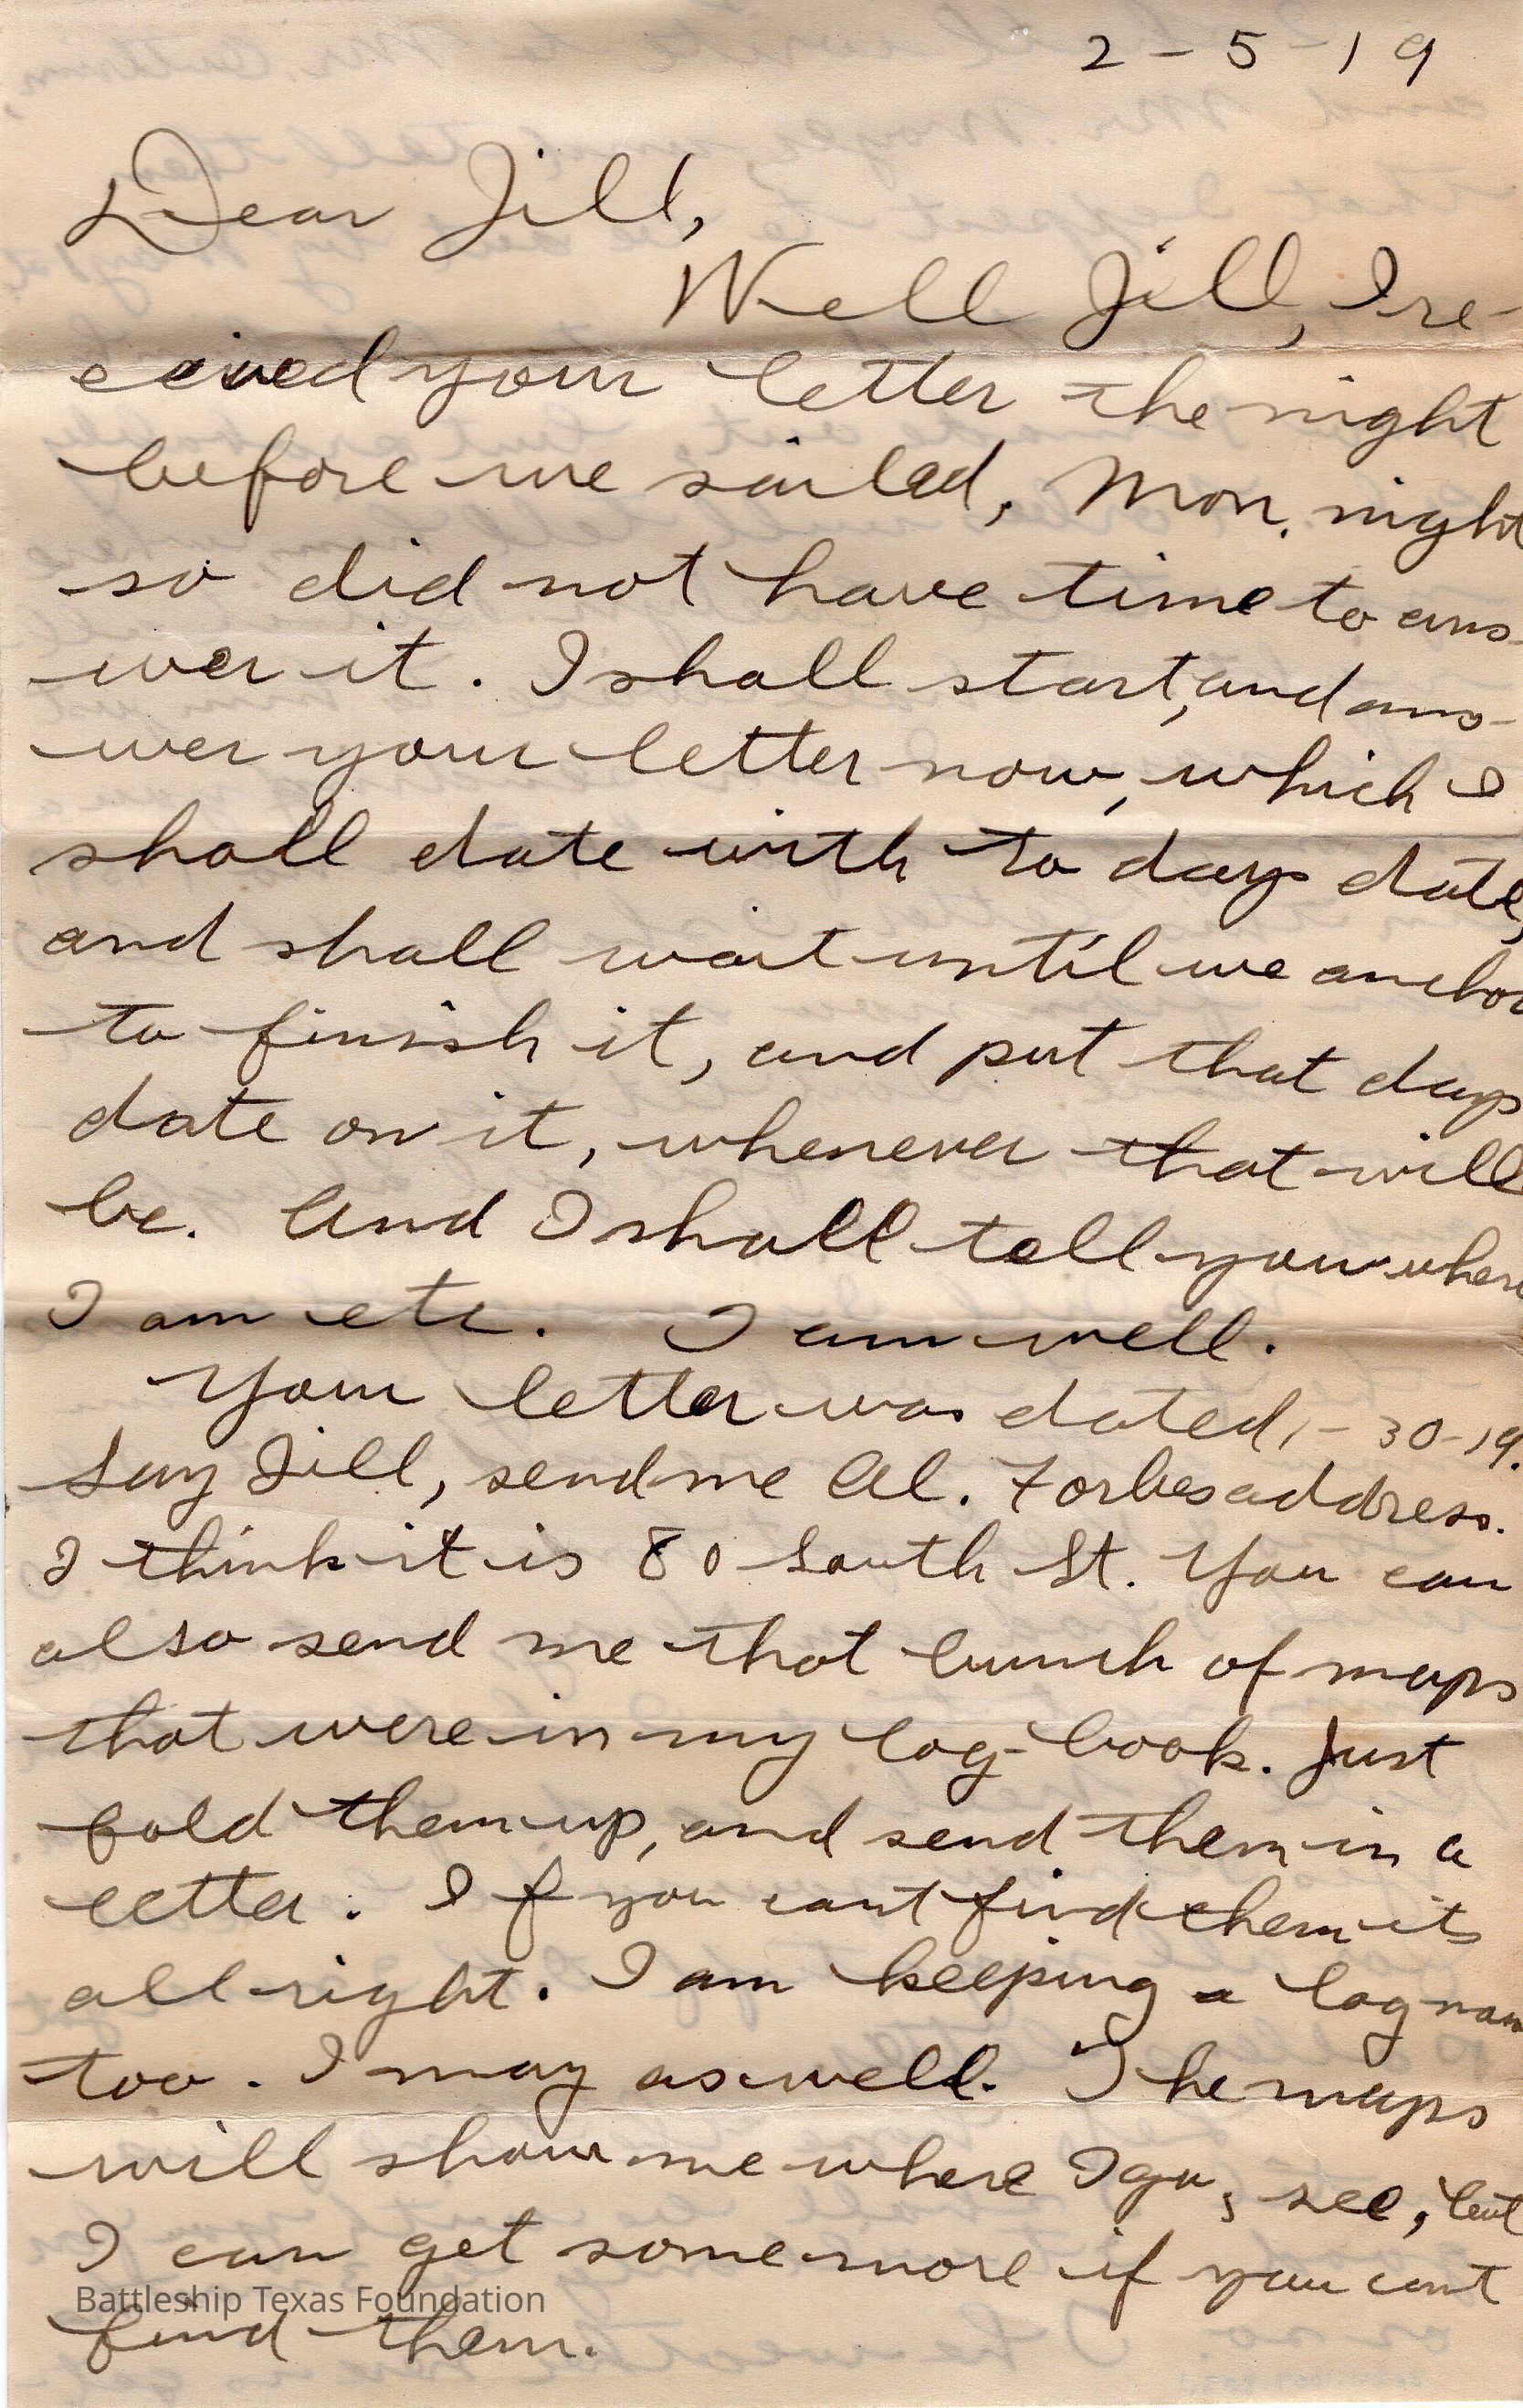 2-5-19
Dear Jill,
Well Jill, I re-
ceived your letter the night
before we sailed, Mon. night
so did not have time to ans-
wer it. I shall start, and ans-
wer your letter now, which I
shall date with to days date,
and shall wait until we anchor
to finish it, and put that days
date on it, whenever that will
be. And I shall tell you where
I am etc. I am well.
Your letter was dated, 1-30-19.
Say Jill, send me Al. Forbes address.
I think it is 80 South St. You can
also send me that bunch of maps
that were in my log-book. Just
fold them up, and send them in a
letter. If you cant find them its
all right. I am keeping a log now
too. I may as well. The maps
will show me where I go, see, but
I can get some more if you cant
Battleship Texas Foundation
find them.